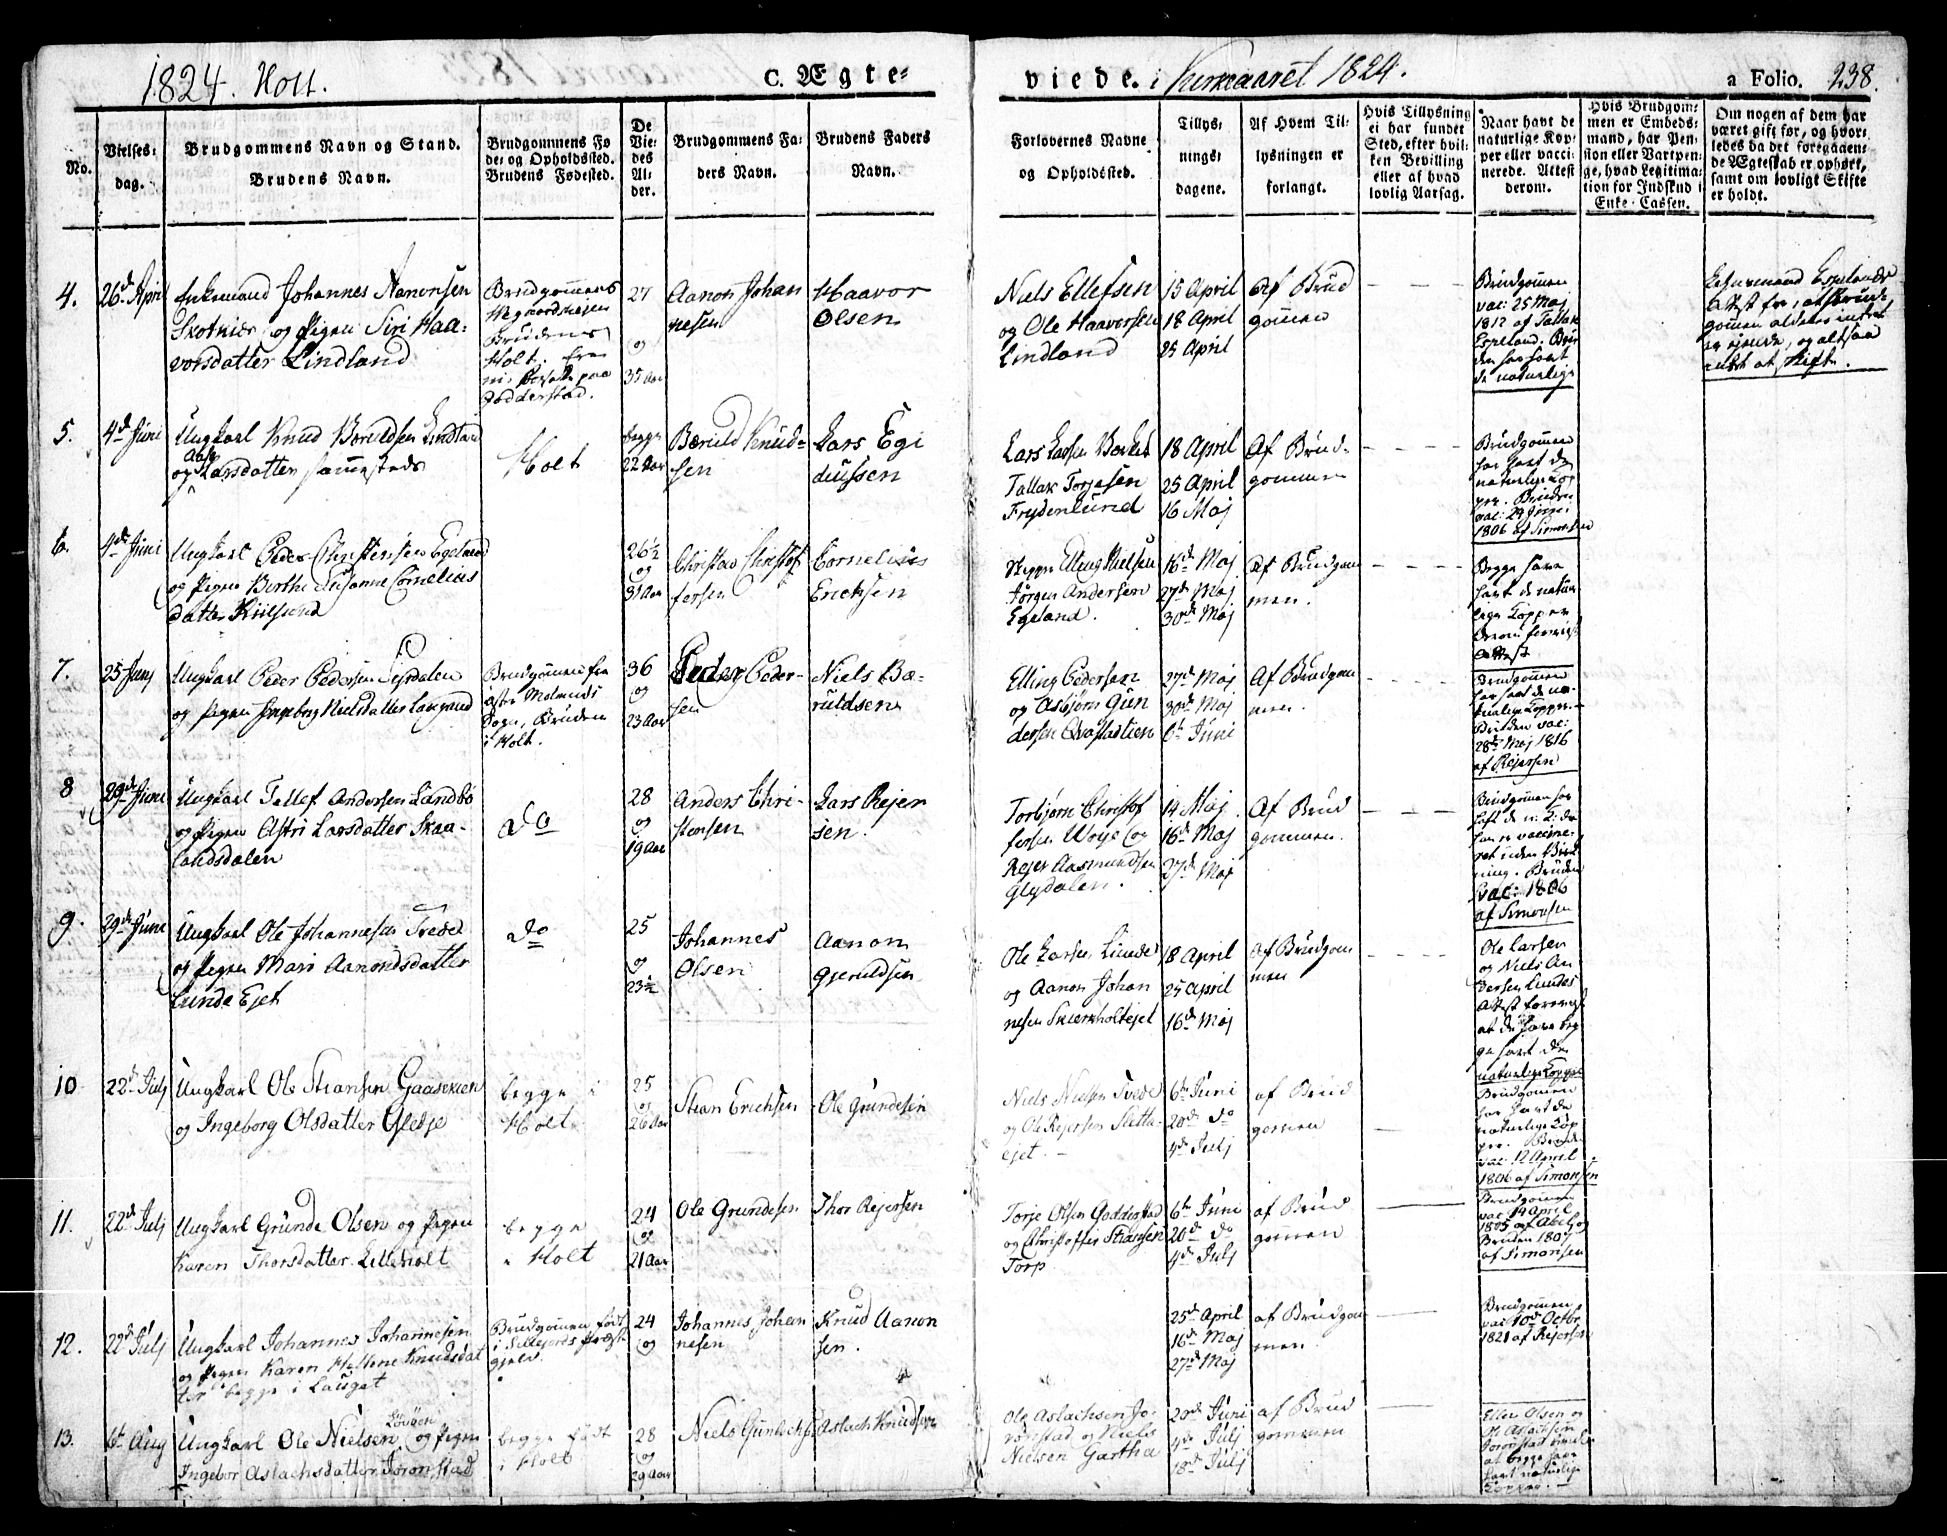 1824. Holt.
C. Ægte-
viede. i Kirkeaaret 1824.
a Folio. 238.
No.
Vielses-
dag.
Brudgommens Navn og Stand.
Brudens Navn.
Brudgommens Fø
de- og Opholdssted.
Brudens Fødested.
De
Vie-
des
Al-
der.
Brudgommens Fa-
ders Navn.
Brudens Faders
Navn.
Forlovernes Navne
og Opholdssted.
Tillys-
nings-
dagene.
Af Hvem Til-
lysningen er
forlangt.
Hvis Tillysning
ei har fundet
Sted, efter hvil-
ken Bevilling
eller af hvad
lovlig Aarsag.
Naar havt de
naturlige Kop-
per eller vacci-
nerede. Attest
derom.
Hvis Brudgom-
men er Embeds-
mand, har Pen-
sion eller Vartpen-
ge, hvad Legitima-
tion for Indskud i
Enke-Cassen.
Om nogen af dem har
været gift før, og hvor-
ledes da det foregaaen-
de Ægteskab er ophørt,
samt om lovligt Skifte
er holdt.
4.
26de April
Enkemand Johannes Aanonsen
Skotnær og Pigen Siri Haa-
vorsdatter Lindland
Brudgommens
Brudens
Holt.
Godderstad.
27
og
35 Aar
Aanon Johan
nesen
Haavor
Olsen
Niels Ellefsen
og Ole Haavorsen
Lindland
15 April
18 April
25 April
Af Brud
gommen
Brudgommen
vac: 25 Maj
1812 af Tallak
Espeland. Bru
den har havt
de naturlige
Attest for, at Brud-
gommen aldeles intet
er ejende, og altsaa
intet at skifte.
5.
4de Juni
Ungkarl Knud Bæruldsen Lindland
Aase
og Larsdatter sammesteds
Holt
begge
22 Aar
Bæruld Knud-
sen
Lars Egi
diussen
Lars Larsen
Tallak Torjesen
Frydenlund
18 April
25 April
16 Maj
Af Brud-
gommen
Brudgommen
har havt de
naturlige Kop
per. Bruden
vac: 24 Juni
1806 af Simonsen
6.
4de Juni
Ungkarl Peder Christensen Egeland
og Pigen Berthe Susanne Cornelius
datter Kiilsund
26½
og
31 Aar
Christen Christof
fersen
Cornelius
Erichsen
Elling Nielsen
Jørgen Andersen
Egeland.
16de Maj
27de Maj
30de Maj
Af Brudgom
men.
Begge have
havt de natur
lige Kopper
Attest
7.
25 Junj
Ungkarl Peder Pedersen
og Pigen Ingeborg Nielsdatter Laugand
Brudgommen fra
østre Molands
Sogn, Bruden
i Holt.
36
og
23 Aar
Peder Peder-
sen
Niels Bæ-
ruldsen
Elling Pedersen
og Asbjørn Gun
dersen Qvastadlien
27de Maj
30de Maj
6te Juni
Af Brudgom
men.
Brudgommen
har havt de na-
turlige Kopper.
Bruden vac:
28de Maj 1816
af Rejersen
8
29de Juni
Ungkarl Tellef Andersen Landbø
og Pigen Astri Larsdatter Skaa-
landsdalen
do
28
og
19 Aar
Anders Chri-
stensen
Lars Rejer
sen.
Torbjørn Christof
fersen Woje og
Rejer Aasmundsen
Glydalen.
14 Maj
16de Maj
27de Maj
Af Brud
gommen.
Brudgommen har
havt de n: K:
Bruden
vac: 1806
af Simonsen
9.
29de Juni
Ungkarl Ole Johannesen Tvede
og Pigen Mari Aanonsdatter
Lunde Ejet
do
25
og
23½
Johannes
Olsen
Aanon
Gjeruldsen
Ole Larsen Lunde
og Aanon Johan
nesen Skierkholtejet
18 April
25 April
16de Maj
Af Brudgom
men
Ole Larsen
og Niels An
dersen Lundes
Attest forevist
at de have beg
ge havt de
naturlige Kopper
10
22de Julj
Ungkarl Ole Stiansen Gaaseaaen
og Ingeborg Olsdatter Fletje
begge i
Holt
25
og
26 Aar
Stian Erichsen
Ole Grundesen
Niels Nielsen Tvede
og Ole Rejersen Sletta-
ejet.
6te Juni
20de do
4de Julj
af Brud
gommen
Brudgommen
har havt de
naturlige Kop
per. Bruden
vac: 12 April
1806 af Simonsen
11.
22de Julj
Ungkarl Grunde Olsen og Pigen
Karen Thorsdatter Lilleholt
begge
i Holt
24
og
21 Aar
Ole Grundesen
Thor Rejersen
Torje Olsen Godderstad
og Christoffer Stiansen
Torp
6te Juni
20de do
4de Julj
af Brud
gommen
Brudgommen
vac: 14 April
1805 af Abel, og
Bruden 1807
af Simonsen
12.
22de Julj
Ungkarl Johannes Johannesen
og Pigen Karen Hellene Knudsdat
ter begge i Lauget
Brudgommen født
i Sillejords Præste
gjeld.
24
og
Johannes Johan
nesen
Knud Aanon
sen.
25de April
16de Maj
27de Maj
af Brudgom
men.
Brudgommen
vac: 10de Octbr.
1821 af Rejersen
13.
6te Aug
Løvøen
Ungkarl Ole Nielsen og Pigen
Ingebor Aslachsdatter Joronstad
begge født
i Holt
28
og
29 Aar
Niels Gunlachs:
Aslach Knudsen
Ole Aslachsen Jo-
ronstad og Niels
Nielsen Gartha
20de Juni
4de Julj
18de Julj
af Brud
gommen
Eller Olsen og
Ole Aslachsen
Joronstad
at begge have
havt naturlige
Kopper.